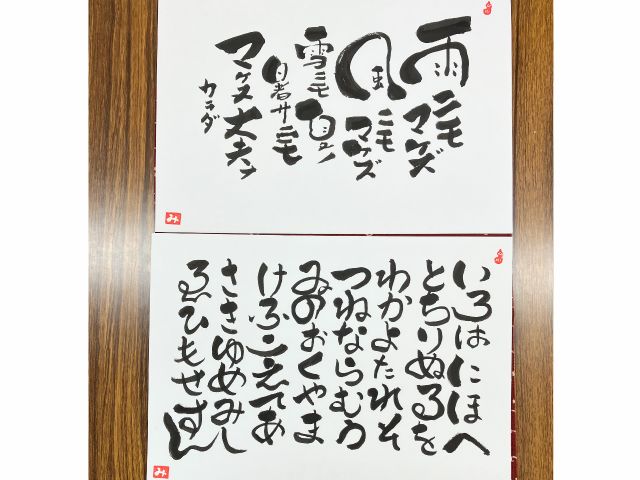 雨ニモマケズ
風ニモマケズ
雪ニモ夏ノ
暑サニモ
マケヌ丈夫ナ
カラダ
み
いろはにほへ
とちりぬるを
わかよたれそ
つねならむう
ゐのおくやま
けふこえてあ
さきゆめみし
ゑひもせすん
み